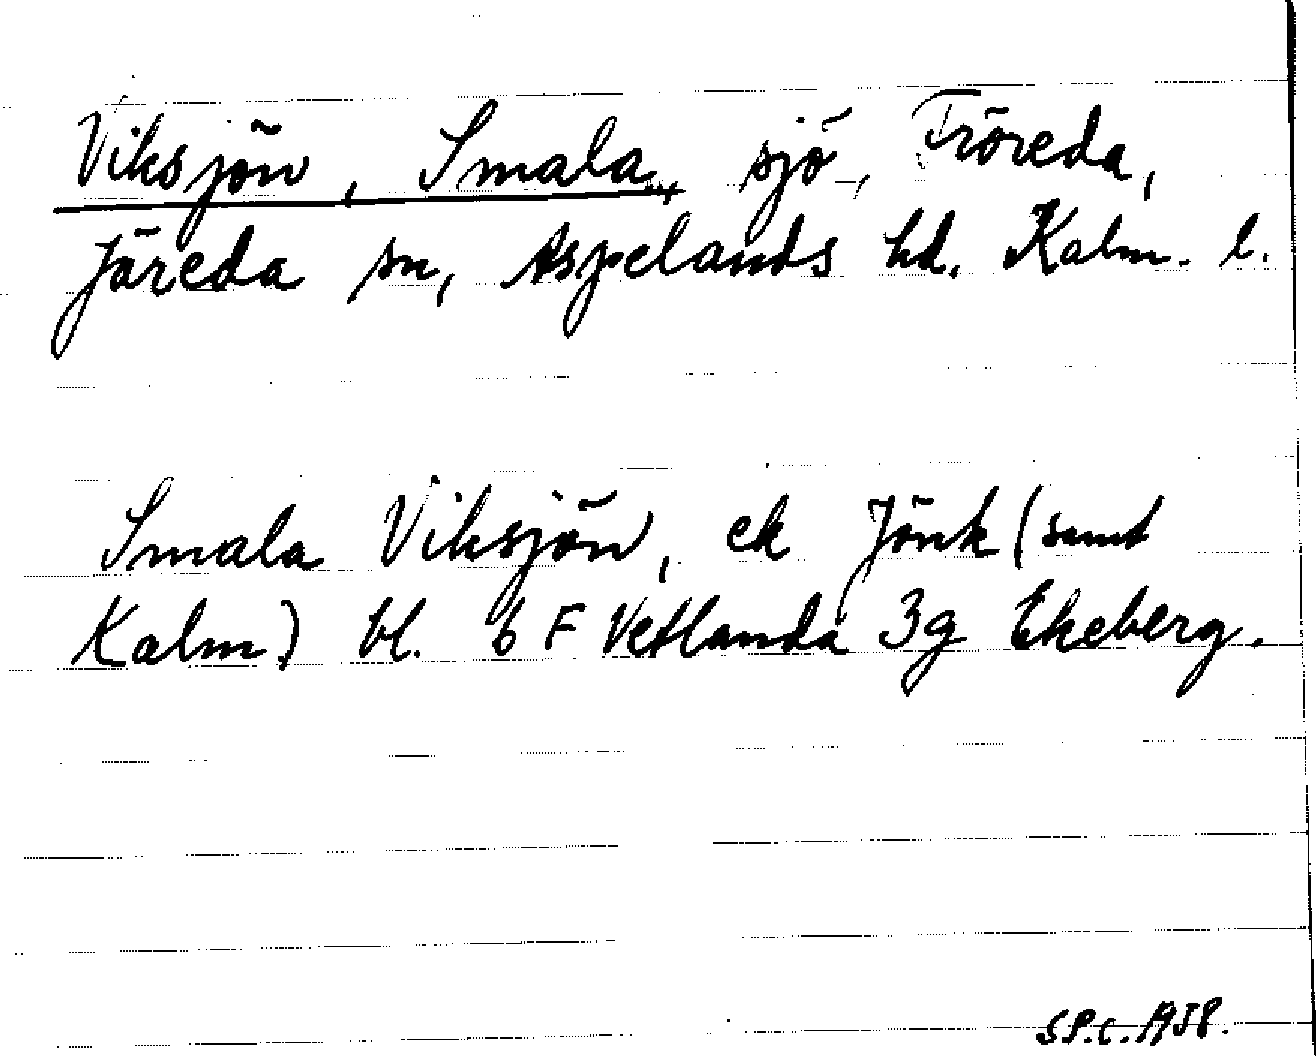 Viksjön, Smala, sjö, Fröreda,
Järeda sn, Aspelands hd. Kalm. l.
Smala Viksjön, ek Jönk (samt
Kalm) bl. 6 F Vetlanda 3g Ekeberg.